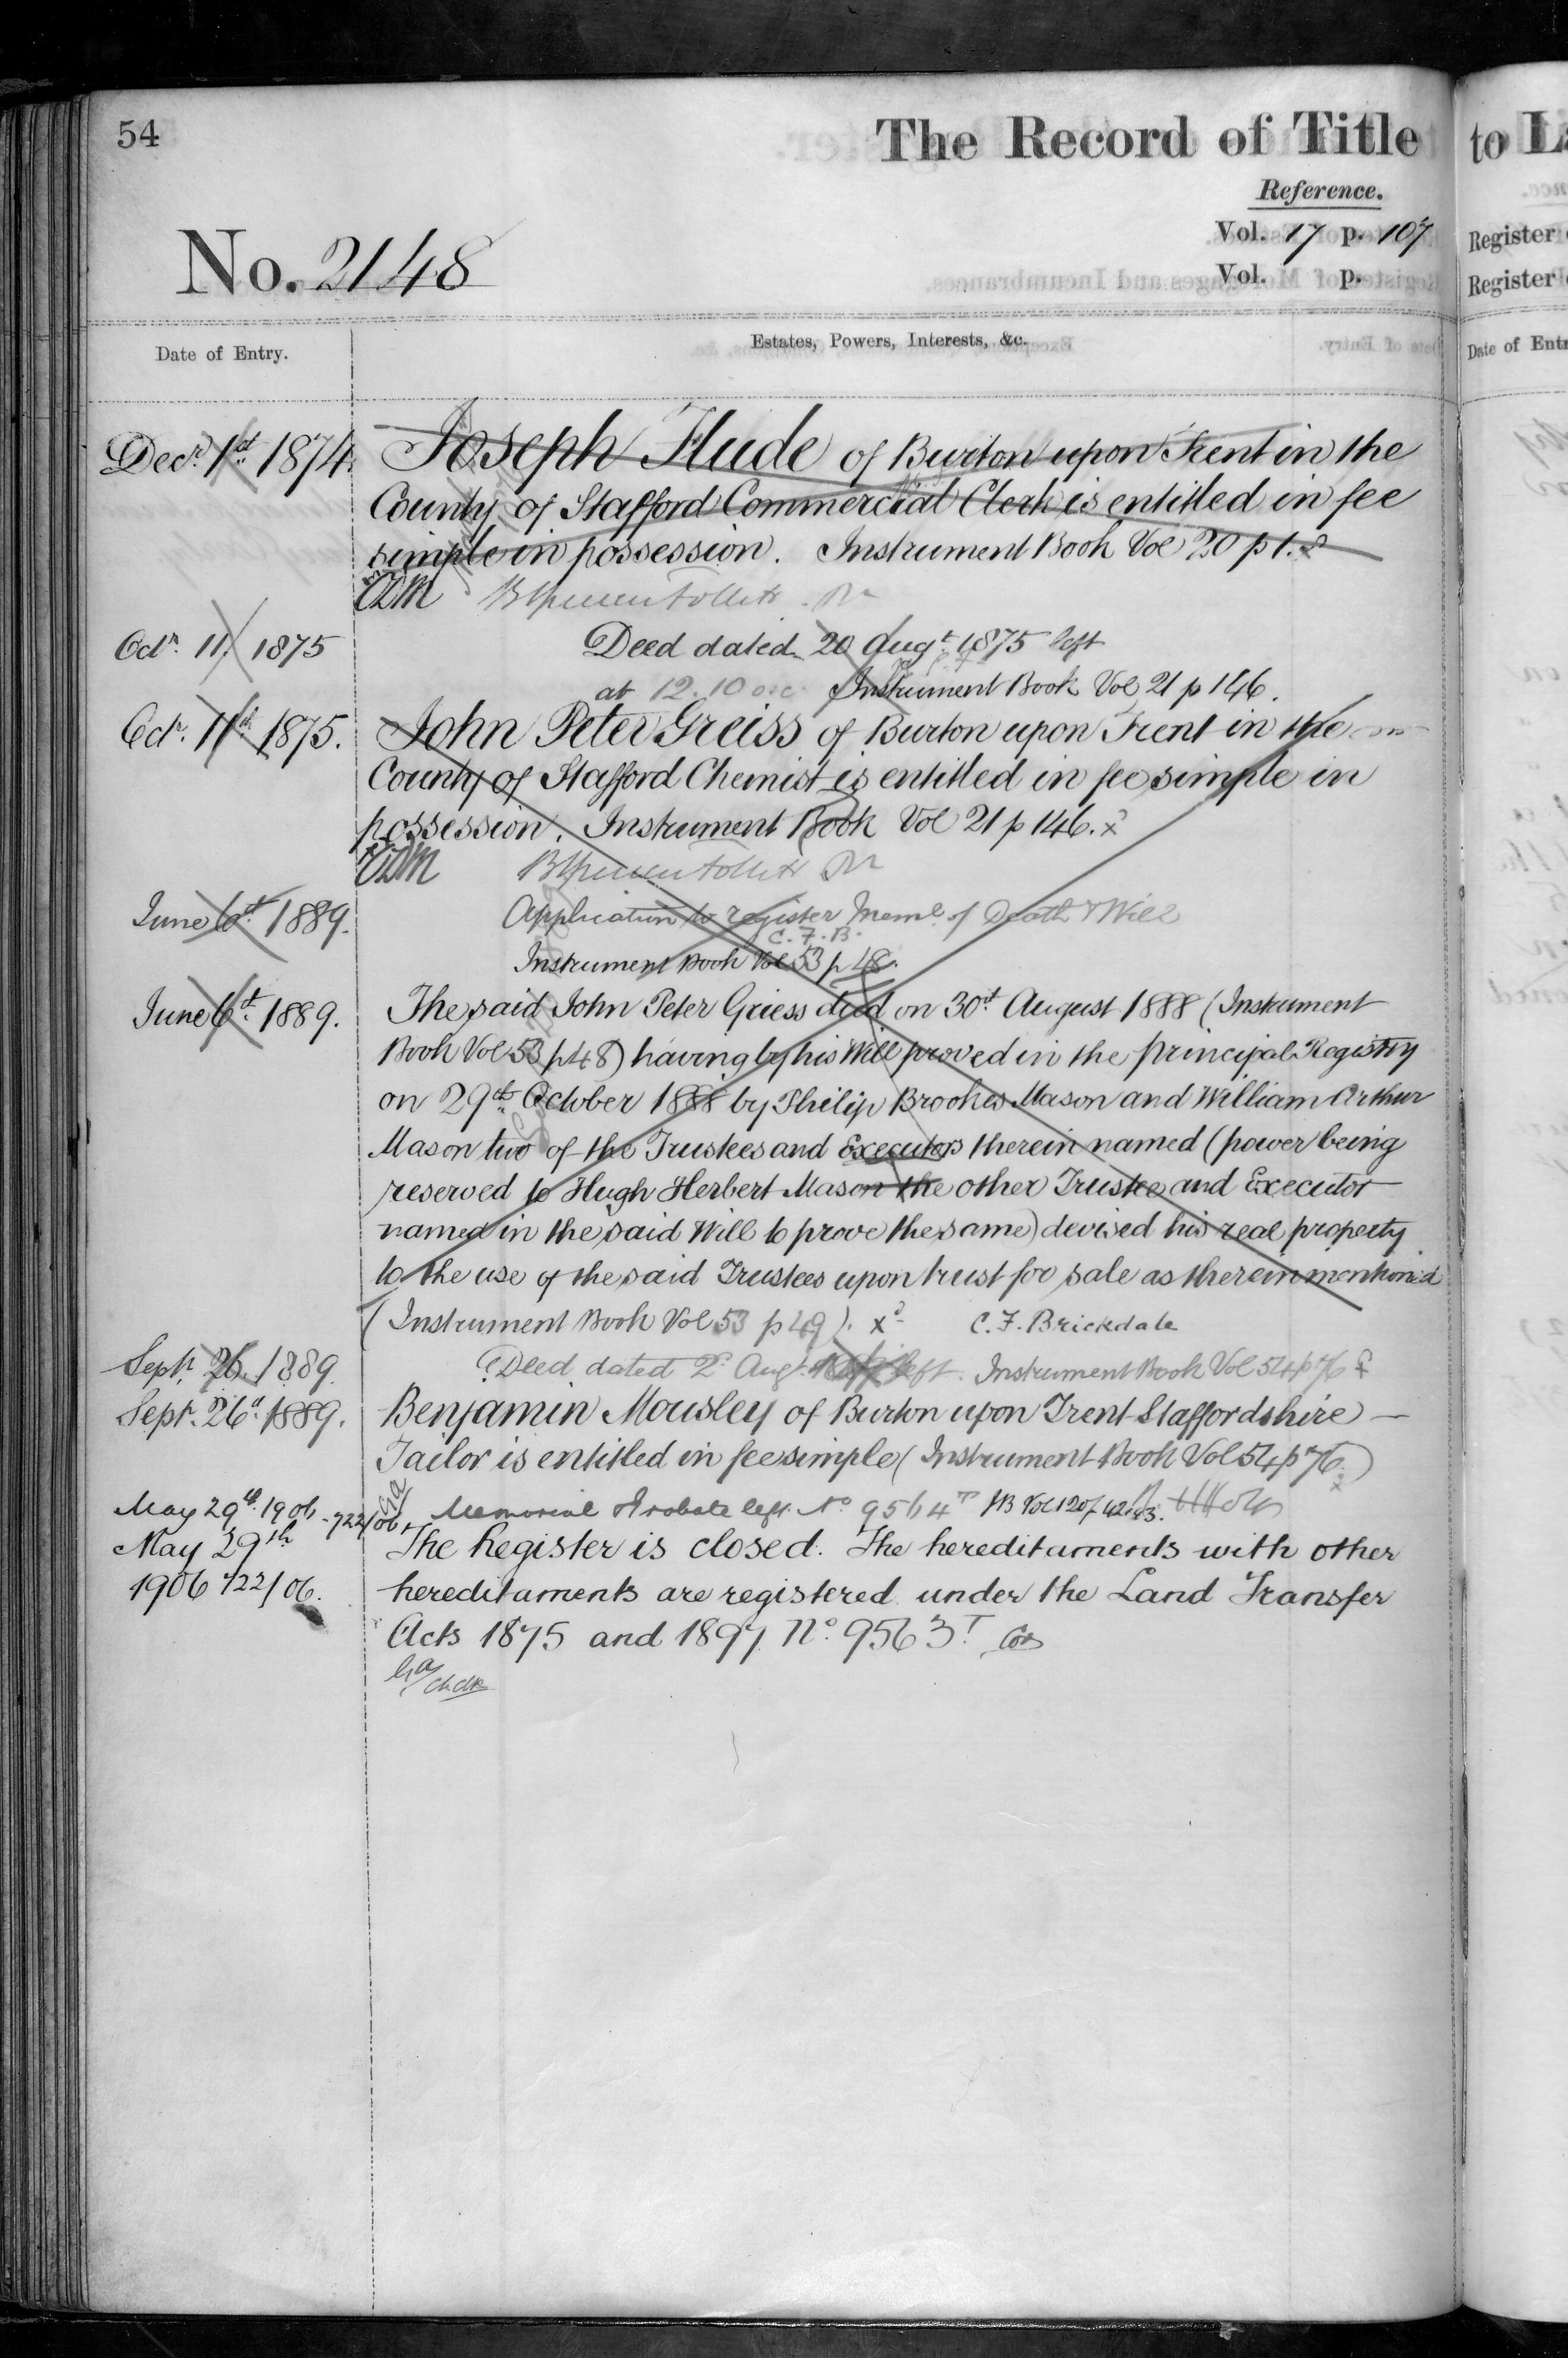 54
The Record of Title
Reference.
Vol. 17 p. 107
Vol. p.
No. 2148
Date of Entry.
Estates, Powers, Interests, &c.
Decr. 1st 1874.
Joseph Hude of Burton upon Trent in the
County of Stafford Commercial Clerk is entitled in fee
simple in possession. Instrument Book Vol 20 p 1.
Octr. 11 1875
Deed dated 20 Augt. 1875 left
at 12.10 Instrument Book Vol 21 p 146.
Octr. 11th 1875.
John Peter Greiss of Burton upon Trent in the
County of Stafford Chemist is entitled in fee simple in
possession. Instrument Book Vol 21 p 146. x
June 6th 1889.
Application to register Meml. of Death & Will
C.F.B.
Instrument Book Vol 53 p 48.
June 6th 1889.
The said John Peter Griess died on 30th August 1888 (Instrument
Book Vol 53 p 48) having by his Will proved in the principal Registry
on 29th October 1888 by Philip Brookes Mason and William Arthur
Mason two of the Trustees and Executors therein named (power being
reserved to Hugh Herbert Mason the other Trustee and Executor
named in the said Will to prove the same) devised his real property
to the use of the said Trustees upon trust for sale as therein mentioned
(Instrument Book Vol 53 p 49). x C.F. Brickdale
Septr. 26. 1889.
Deed dated 2d Augt. left. Instrument Book Vol 54 p 76
Septr. 26th 1889.
Benjamin Mousley of Burton upon Trent Staffordshire
Tailor is entitled in fee simple (Instrument Book Vol 54 p 76.)
May 29th. 1906 - 722/06.
Memorial & Probate left. No 9564T IB Vol 120 p 42.43.
May 29th
1906 722/06.
The Register is closed. The hereditaments with other
hereditaments are registered under the Land Transfer
Acts 1875 and 1897. No. 9563T
to La
Register
Register
Date of Entr